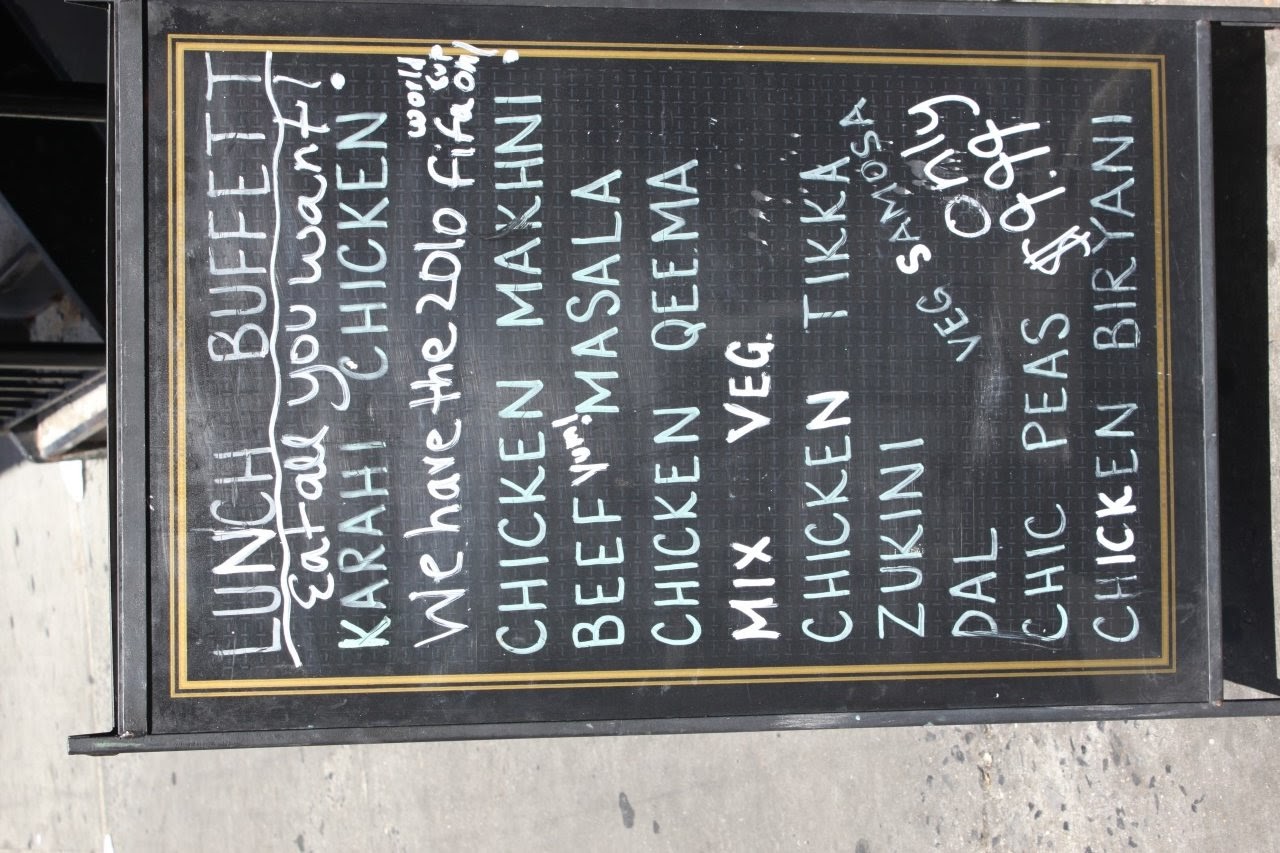 LUNCH BUFFETT
Eat all you want!
KARAHI CHICKEN
We have the 2010 fifa world cup on!
CHICKEN MAKHNI
BEEF yum! MASALA
CHICKEN QEEMA
MIX VEG.
CHICKEN TIKKA
ZUKINI
VEG SAMOSA
DAL
Only
CHIC PEAS
$9.99
CHICKEN BIRYANI